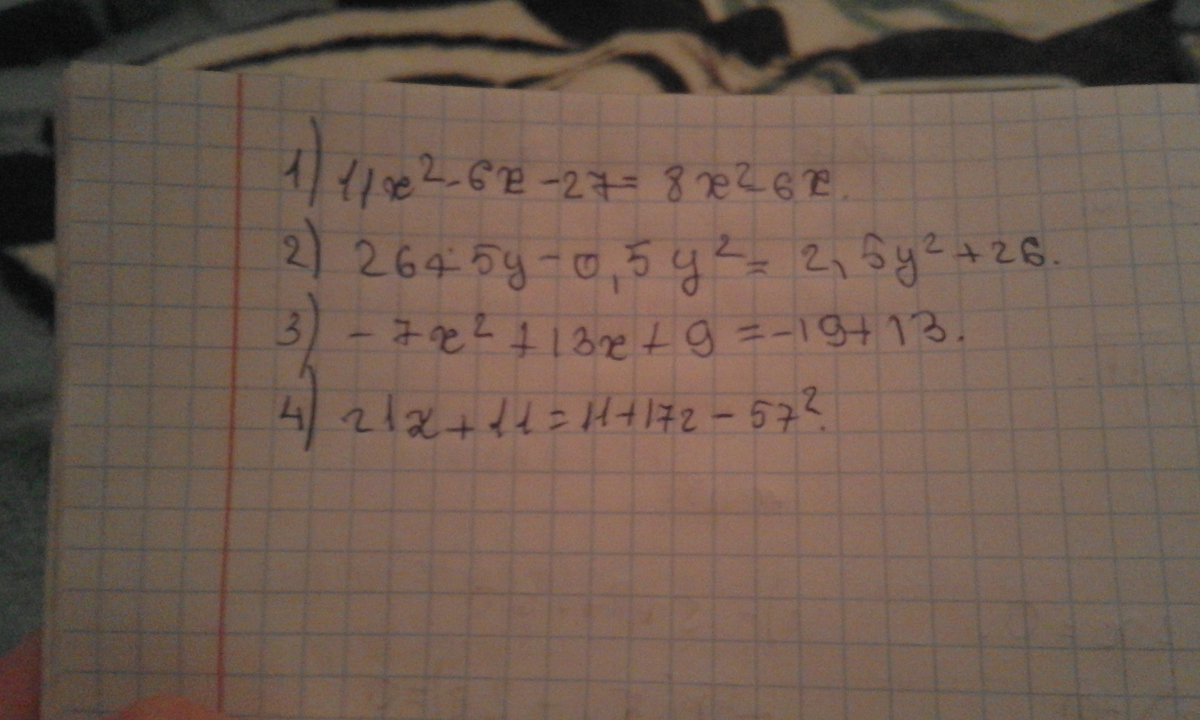 1) 11x²-6x-27= 8x²-6x.
2) 26+5y-0,5y²= 2,5y²+26.
3) -7x²+13x+9=-19+13.
4) 21x+11=11+17z-57².